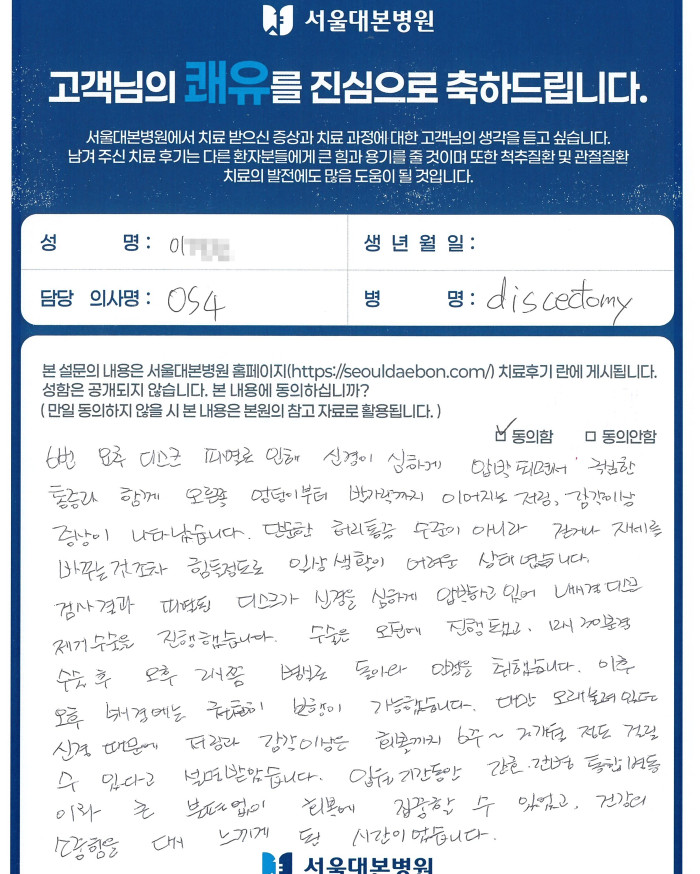 서울대본병원
고객님의 쾌유를 진심으로 축하드립니다.
서울대본병원에서 치료 받으신 증상과 치료 과정에 대한 고객님의 생각을 듣고 싶습니다.
남겨 주신 치료 후기는 다른 환자분들에게 큰 힘과 용기를 줄 것이며 또한 척추질환 및 관절질환
치료의 발전에도 많음 도움이 될 것입니다.
성 명 : 이
생 년 월 일 :
담당 의사명 : OS4
병 명 : discectomy
본 설문의 내용은 서울대본병원 홈페이지(https://seouldaebon.com/) 치료후기 란에 게시됩니다.
성함은 공개되지 않습니다. 본 내용에 동의하십니까?
( 만일 동의하지 않을 시 본 내용은 본원의 참고 자료로 활용됩니다. )
동의함 동의안함
6번 요추 디스크 파열로 인해 신경이 심하게 압박되면서 극심한
통증과 함께 오른쪽 엉덩이부터 발가락까지 이어지는 저림, 감각이상
증상이 나타났습니다. 단순한 허리통증 수준이 아니라 걷거나 자세를
바꾸는것조차 힘들정도로 일상생활이 어려운 상태였습니다.
검사결과 파열된 디스크가 신경을 심하게 압박하고 있어 내시경 디스크
제거수술을 진행했습니다. 수술은 오전에 진행됐고, 12시 30분경
수술 후 오후 2시쯤 병실로 돌아와 안정을 취했습니다. 이후
오후 5시경에는 보행이 가능했습니다. 다만 오래눌려있던
신경 때문에 저림과 감각이상은 회복까지 6주 ~ 3개월 정도 걸릴
수 있다고 설명받았습니다. 입원기간동안 간호·간병 통합병동
이라 큰 불편없이 회복에 집중할 수 있었고, 건강의
소중함을 다시 느끼게 된 시간이었습니다.
서울대본병원